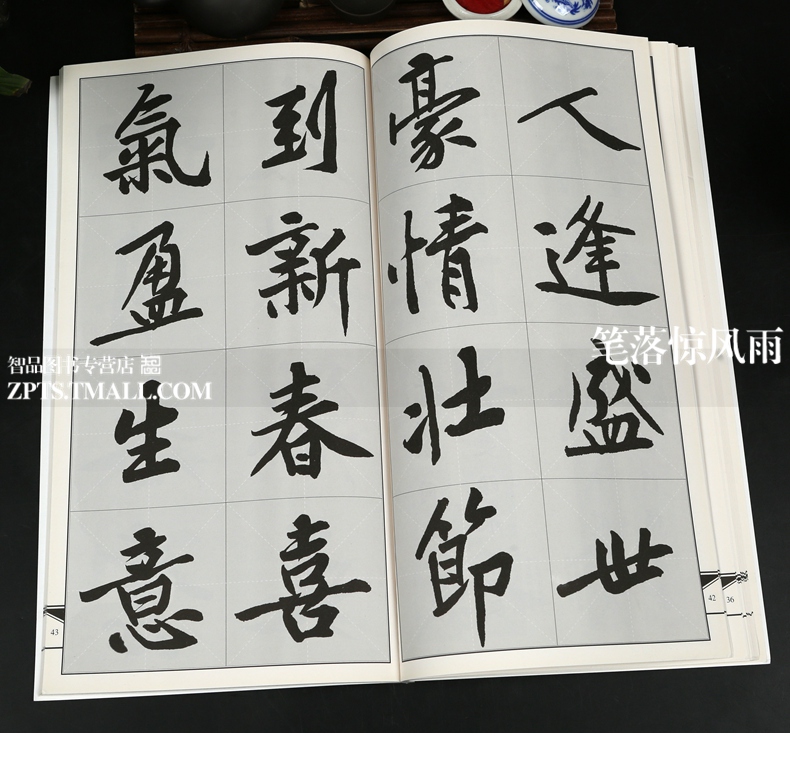 人逢盛世
豪情壮節
到新春喜
氣盈生意
笔落惊风雨
智品图书专营店
ZPTS.TMALL.COM
43
42
36